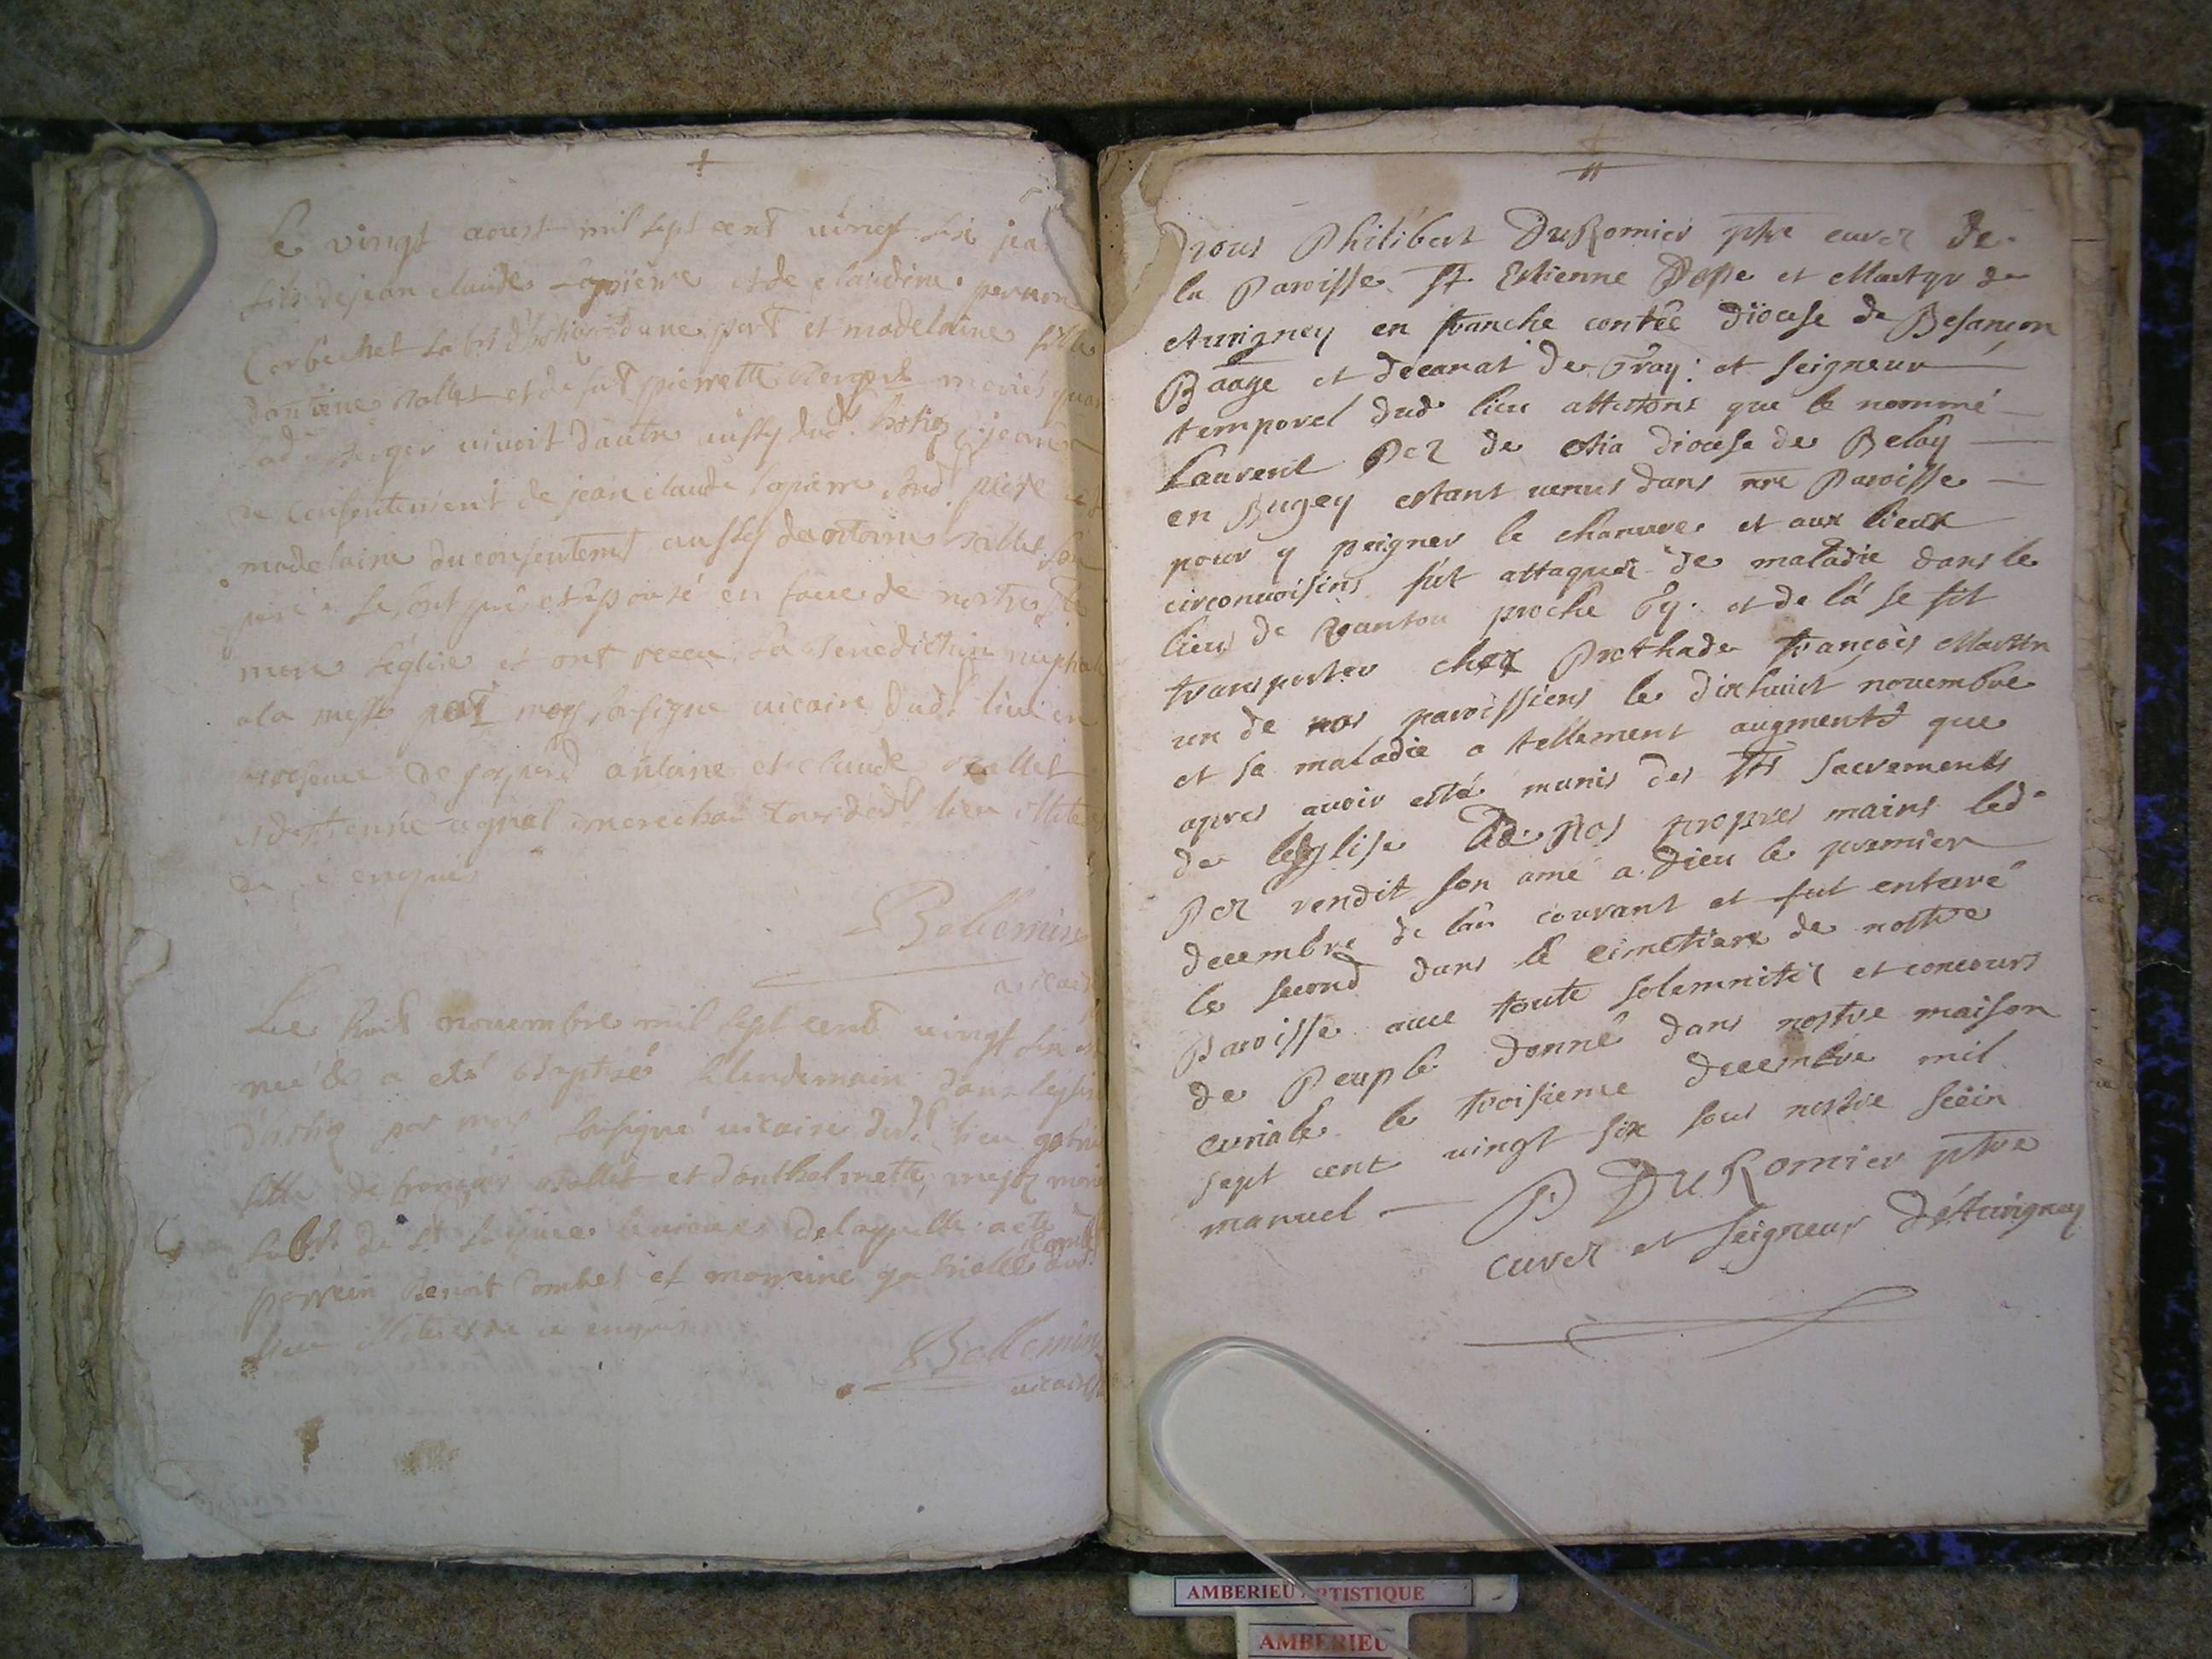 Le vingt aoust mil sept cent vingt six jea
fils de jean claude Lapierre et de claudine perron
Corbechet d'une part et madelaine fille
d'antoine rallet et de fut pierrette Berger mariés quan
lad Berger vivoit d'autre aussy dud hostiaz jean
du consentement de jean claude lapierre sond pere et
madelaine du consentemt aussy d'antoine rallet son
pere se sont pris et épousé en face de nostre ste
mere l'église et ont receu la Bénédiction nuptiale
a la messe par moy soussigné vicaire dud lieu en
presence de antoine et claude rallet
et d'estienne tous dud lieu illiterés
de ce enquis
Bellemin
vicaire
Le huit novembre mil sept cent vingt six est
née & a été baptisé le lendemain dans l'eglise
d'hostiaz par moy soussigné vicaire dud lieu
fille de françois rallet et d'anthelmette mariés
delaquelle a été
parrein Benoit Combet et marreine gabrielle Combet dud
lieu illiterés de ce enquis
Bellemin
vicaire
nous Philibert DuRomier ptre curez de
la Paroisse St Estienne Pape et Martyr de
Auvigney en franche contée diocese de Besançon
Baage et décanat de Gray: et seigneur
temporel dud lieu attestons que le nommé
Laurent Pez de diocese de Belay
en Bugey estant venus dans nre Paroisse
pour y peigner le chanvre et aux lieux
circonvoisins fut attaqué de maladie dans le
lieu de vantou proche Gy. et de là se fit
transporter chez Prothade françois Martin
un de nos paroissiens le dixhuict novembre
et sa maladie a tellement augmenté que
apres avoir esté munis des Sts sacrements
de leglise de nos propres mains led
Pez rendit son ame a Dieu le premier
decembre de lan courant et fut enterré
le second dans le cimetiere de nostre
Paroisse avec toute solemnitéz et concours
de Peuple donné dans nostre maison
curiale le troisieme decembre mil
sept cent vingt six sous nostre séein
manuel
P DuRomier ptre
curez et seigneur d'Auvigney
AMBERIEU ARTISTIQUE
AMBERIEU